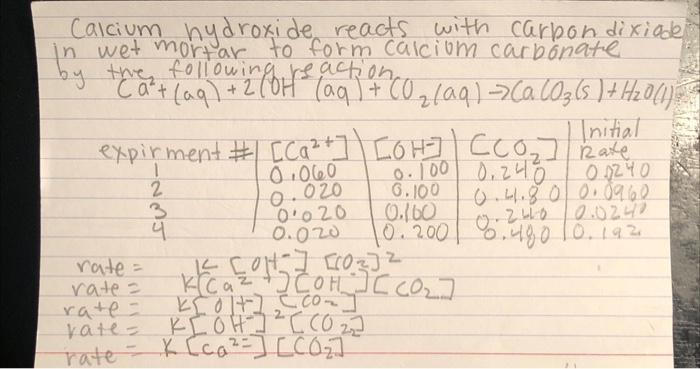 Calcium hydroxide reacts with carbon dixiode
in wet mortar to form calcium carbonate
by the following reaction
Ca²+(aq)+2(OH⁻(aq)+CO₂(aq)→CaCO₃(s)+H₂O(l)
Initial
expirment # [Ca²⁺] [OH⁻] [CO₂] Rate
1 0.060 0.100 0.240 0.0240
2 0.020 0.100 0.480 0.0960
3 0.020 0.100 0.240 0.0240
4 0.020 0.200 0.480 0.192
rate = K [OH⁻] [CO₂]²
rate = K[Ca²⁺][OH⁻][CO₂]
rate = K[OH⁻] [CO₂]
rate = K[OH⁻]²[CO₂]
rate = K [Ca²⁼] [CO₂]